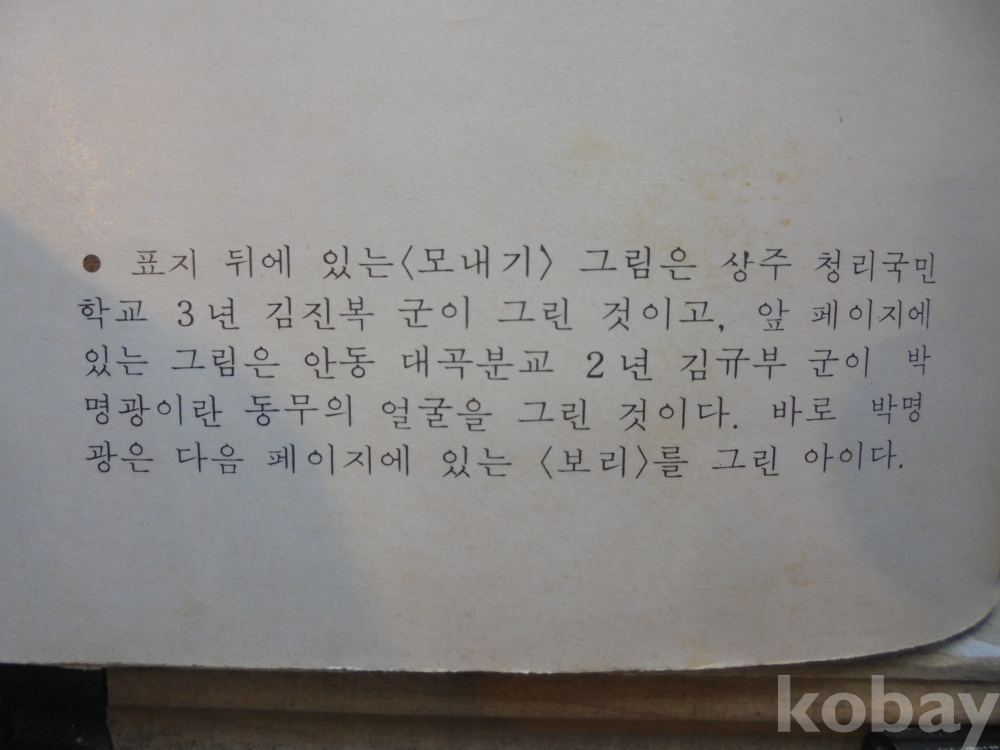 ● 표지 뒤에 있는〈모내기〉 그림은 상주 청리국민
학교 3년 김진복 군이 그린 것이고, 앞 페이지에
있는 그림은 안동 대곡분교 2년 김규부 군이 박
명광이란 동무의 얼굴을 그린 것이다. 바로 박명
광은 다음 페이지에 있는 〈보리〉를 그린 아이다.
kobay